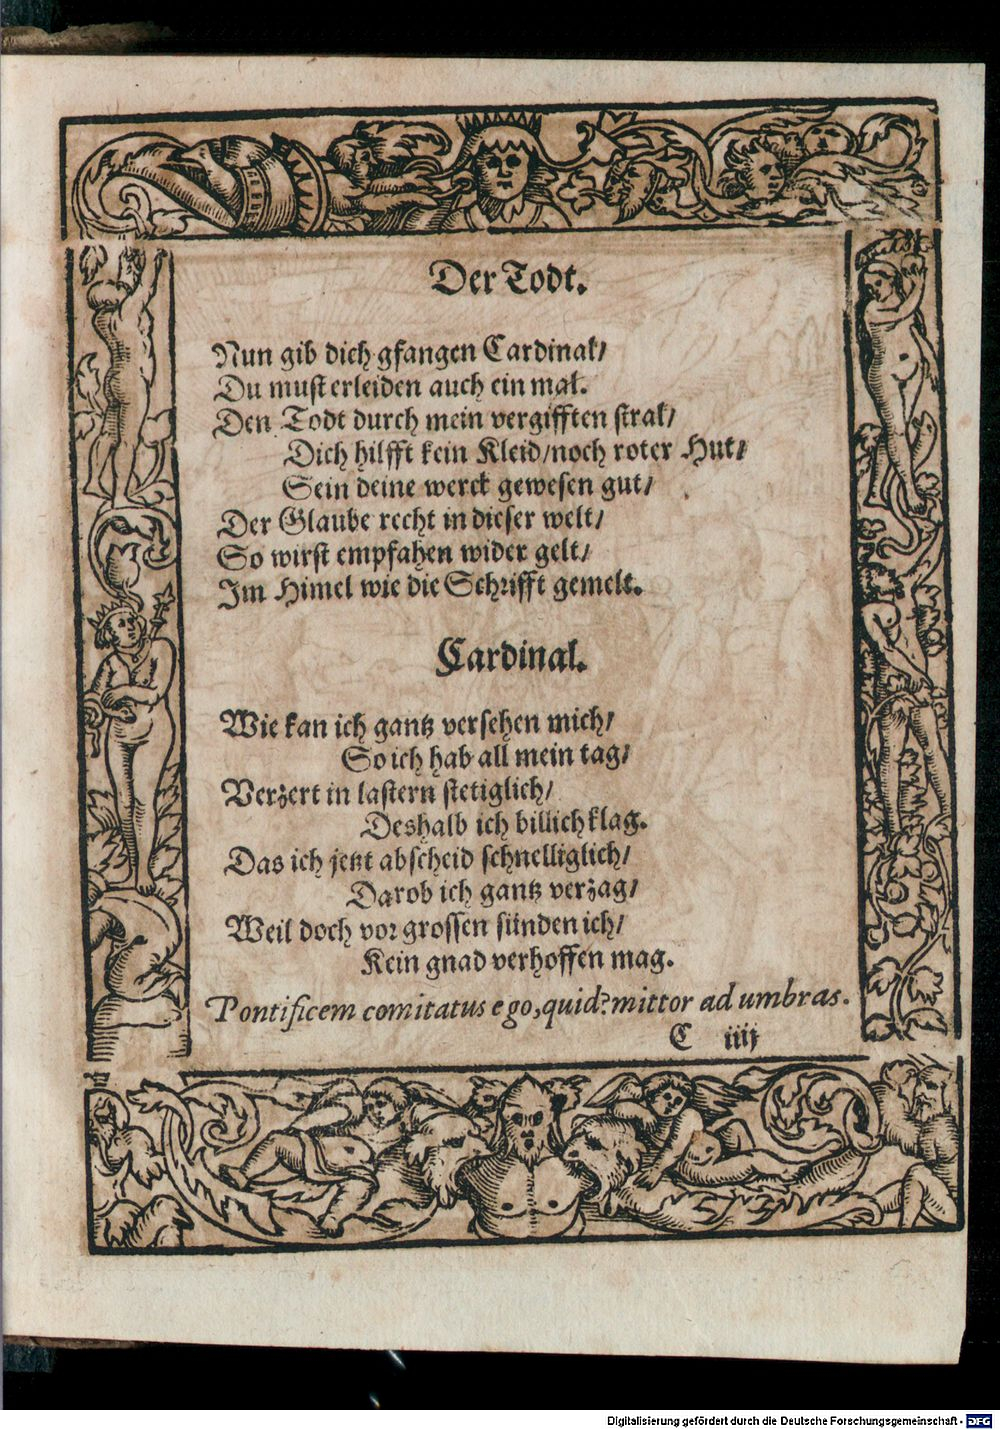 Der Todt.
Nun gib dich gfangen Cardinal/
Du must erleiden auch ein mal.
Den Todt durch mein vergifften stral/
Dich hilfft kein Kleid/noch roter Hut/
Sein deine werck gewesen gut/
Der Glaube recht in dieser welt/
So wirst empfahen wider gelt/
Im Himel wie die Schrifft gemelt.
Cardinal.
Wie kan ich gantz versehen mich/
So ich hab all mein tag/
Verzert in lastern stetiglich/
Deshalb ich billich klag.
Das ich jetzt abscheid schnelliglich/
Darob ich gantz verzag/
Weil doch vor grossen sünden ich/
Kein gnad verhoffen mag.
Pontificem comitatus ego, quid? mittor ad umbras.
C iiij
Digitalisierung gefördert durch die Deutsche Forschungsgemeinschaft - DFG